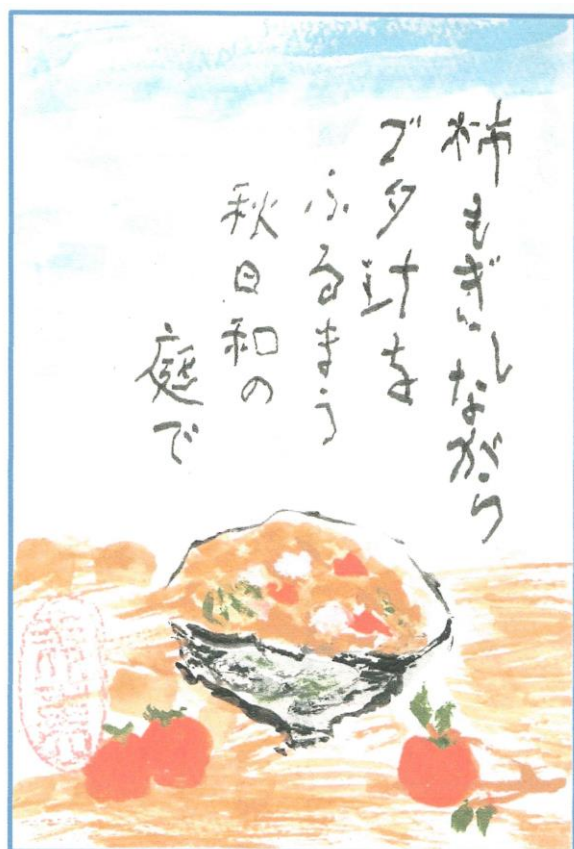 柿もぎしながら
ブタ汁を
ふるまう
秋日和の
庭で